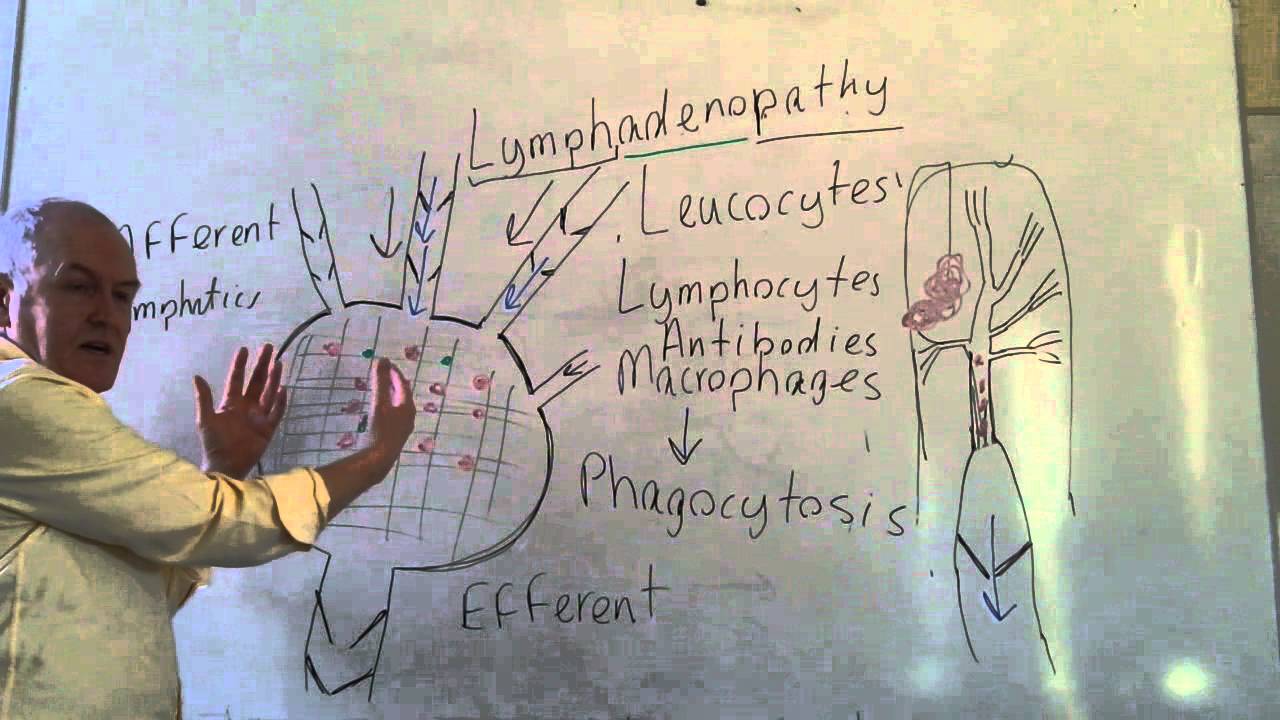 Lymphadenopathy
Afferent
Leucocytes
Lymphocytes
Antibodies
Macrophages
Phagocytosis
Efferent